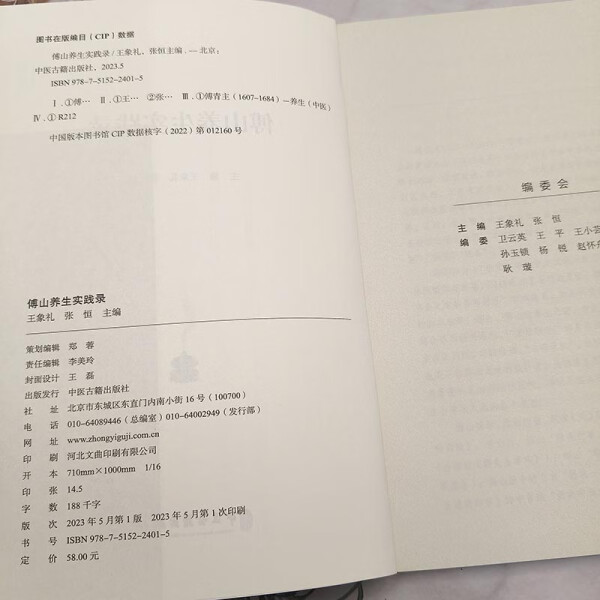 图书在版编目（CIP）数据
傅山养生实践录 / 王象礼，张恒主编. — 北京：
中医古籍出版社，2023.5
ISBN 978-7-5152-2401-5
Ⅰ. ①傅… Ⅱ. ①王… ②张… Ⅲ. ①傅青主（1607-1684）—养生（中医）
Ⅳ. ① R212
中国版本图书馆 CIP 数据核字（2022）第 012160 号
傅山养生实践录
王象礼 张 恒 主编
策划编辑 郑 蓉
责任编辑 李美玲
封面设计 王 磊
出版发行 中医古籍出版社
社 址 北京市东城区东直门内南小街 16 号（100700）
电 话 010-64089446（总编室）010-64002949（发行部）
网 址 www.zhongyiguji.com.cn
印 刷 河北文曲印刷有限公司
开 本 710mm×1000mm 1/16
印 张 14.5
字 数 188 千字
版 次 2023 年 5 月第 1 版 2023 年 5 月第 1 次印刷
书 号 ISBN 978-7-5152-2401-5
定 价 58.00 元
编委会
主 编 王象礼 张 恒
编 委 卫云英 王 平 王小芸
孙玉锁 杨 锐 赵怀舟
耿 璇